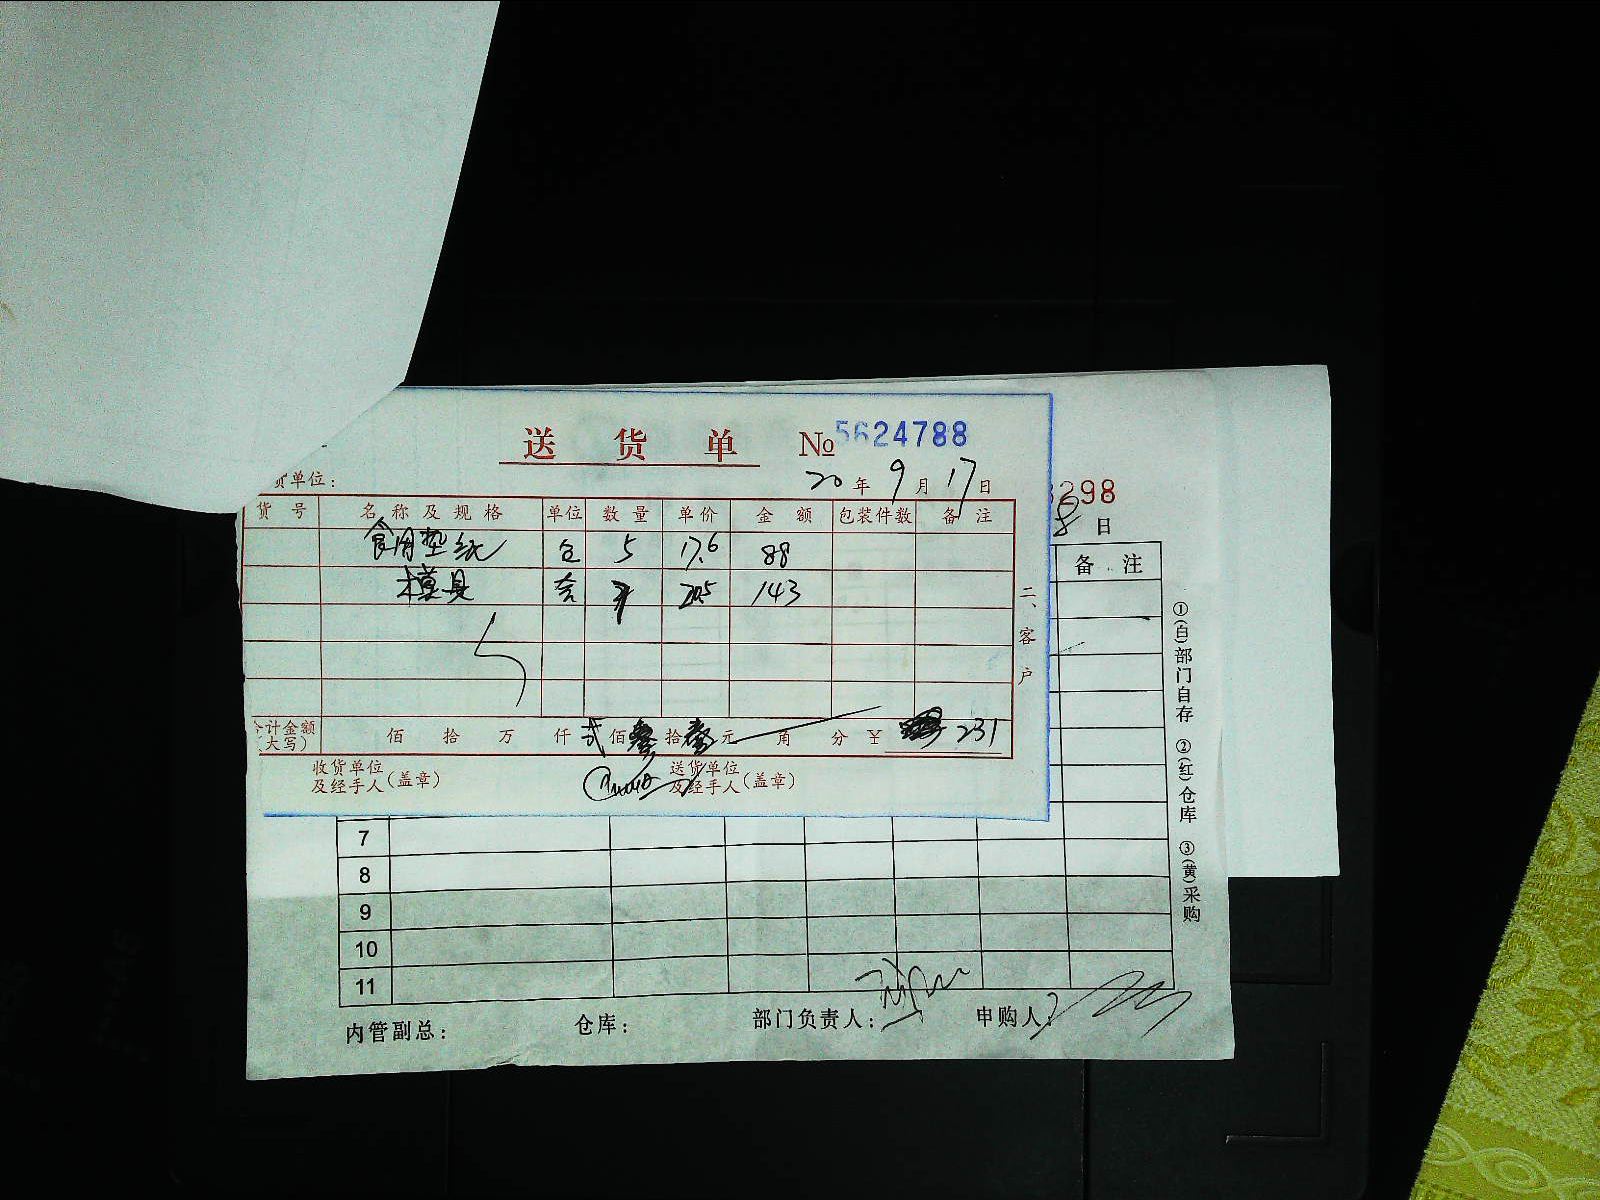 送货单 №5624788
货单位：
20年9月17日
货号 名称及规格 单位 数量 单价 金额 包装件数 备注
食用垫纸 5 17.6 88
模具 20.5 143
合计金额 佰 拾 万 仟 贰佰 叁拾 壹元 角 分 ¥ 231
(大写)
收货单位 送货单位
及经手人(盖章) 及经手人(盖章)
二、客户
298
8日
备注
7
8
9
10
11
①(白)部门自存 ②(红)仓库 ③(黄)采购
内管副总： 仓库： 部门负责人： 申购人：